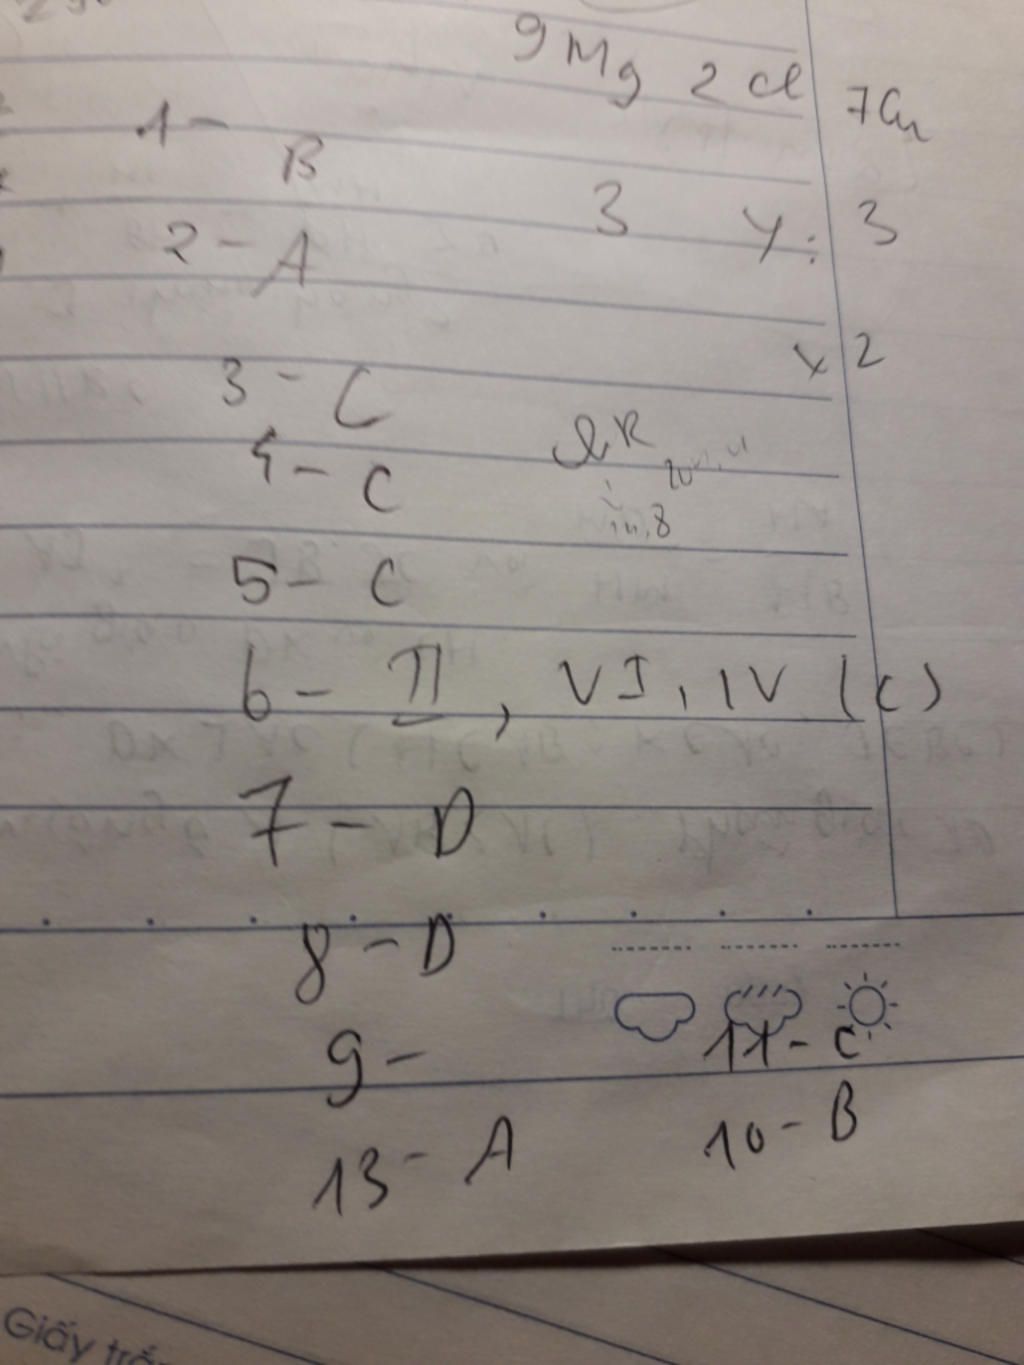 9 Mg 2 Cl 7 Cu
1 - B
3 y: 3
2 - A
x 2
3 - C
4 - C
5 - C
6 - II, VI, IV (C)
7 - D
8 - D
9 -
11 - C
13 - A
10 - B
Giấy trắn